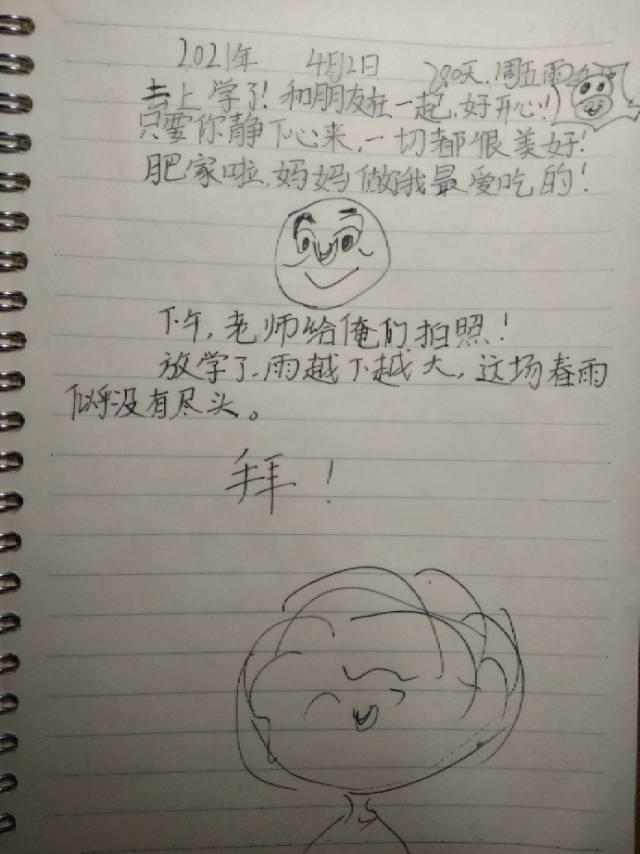 2021年 4月2日 280天.周五雨
去上学了!和朋友在一起,好开心!
只要你静下心来,一切都很美好!
肥家啦,妈妈做我最爱吃的!
下午,老师给俺们拍照!
放学了、雨越下越大,这场春雨
似乎没有尽头。
拜!